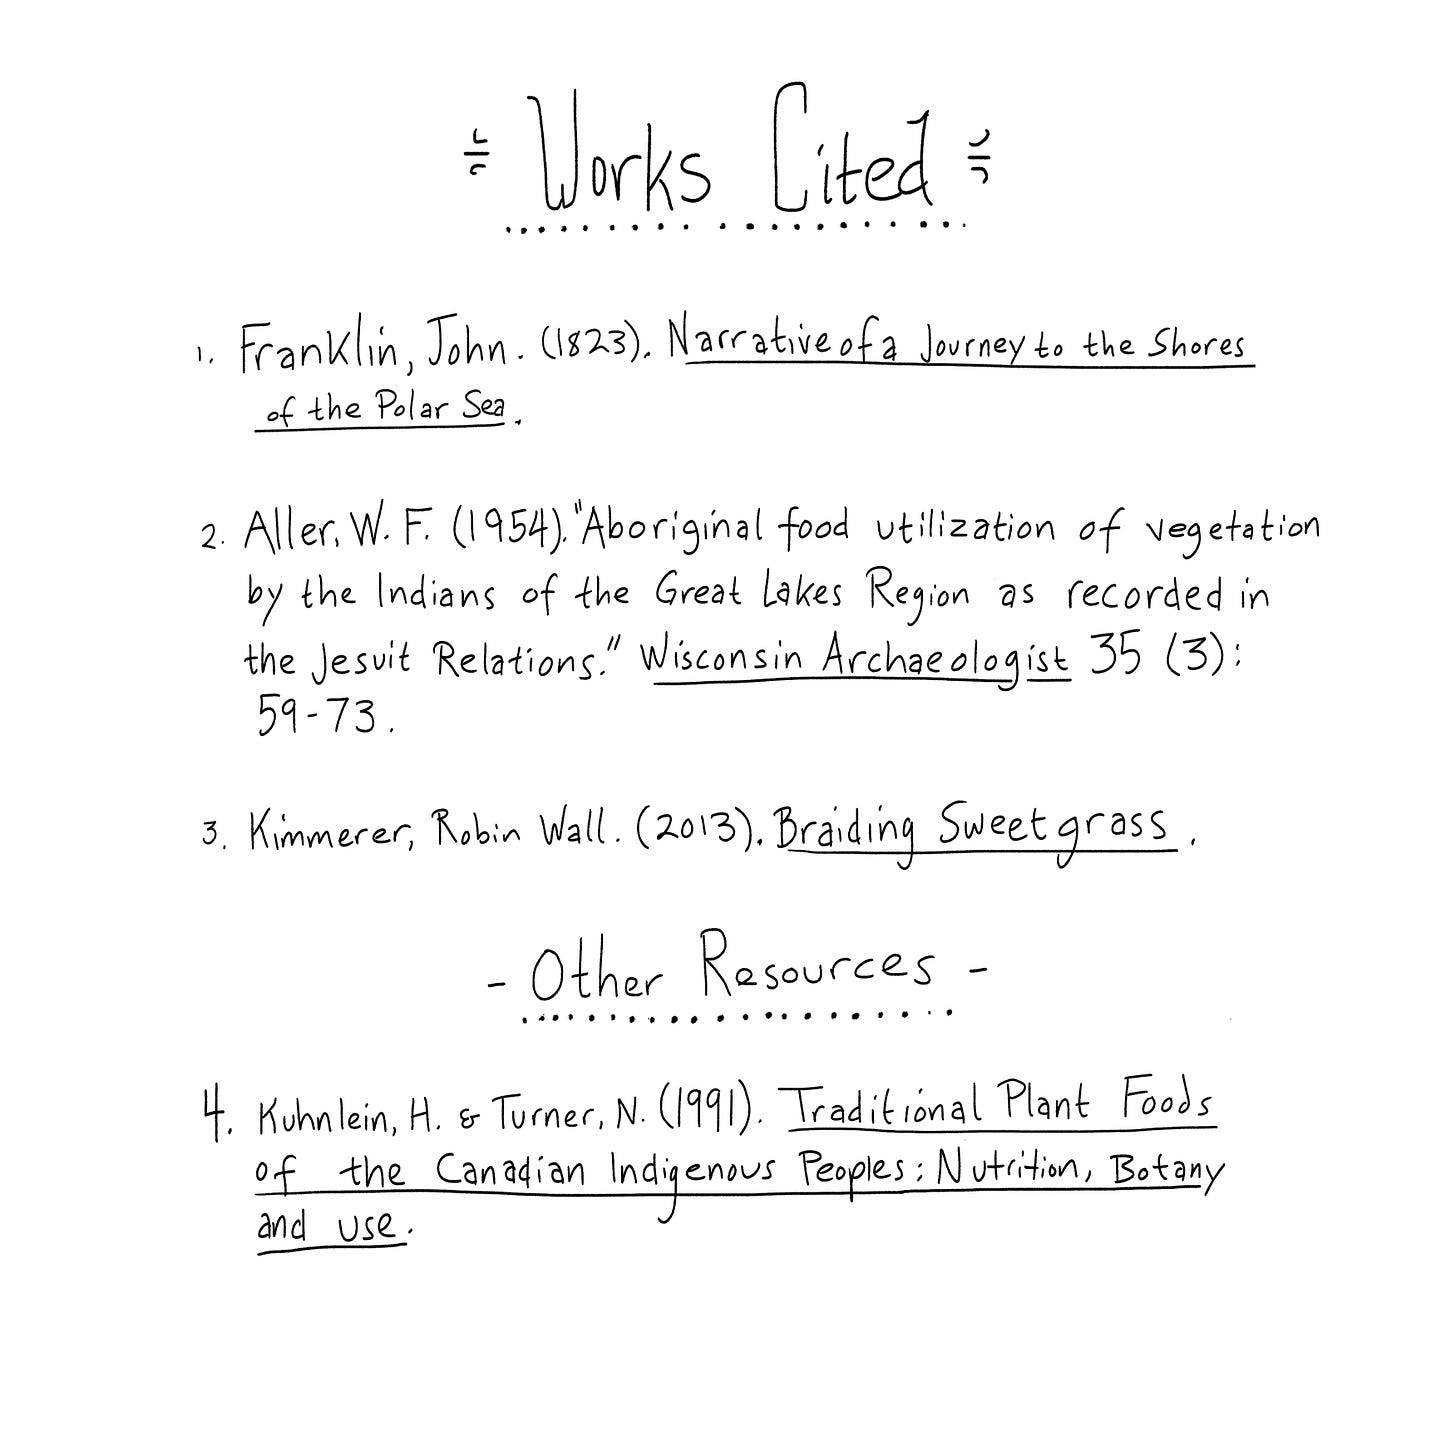 Works Cited
1. Franklin, John. (1823). Narrative of a Journey to the Shores
of the Polar Sea.
2. Aller, W. F. (1954). "Aboriginal food utilization of vegetation
by the Indians of the Great Lakes Region as recorded in
the Jesuit Relations." Wisconsin Archaeologist 35 (3):
59-73.
3. Kimmerer, Robin Wall. (2013). Braiding Sweetgrass.
- Other Resources -
4. Kuhnlein, H. & Turner, N. (1991). Traditional Plant Foods
of the Canadian Indigenous Peoples: Nutrition, Botany
and use.